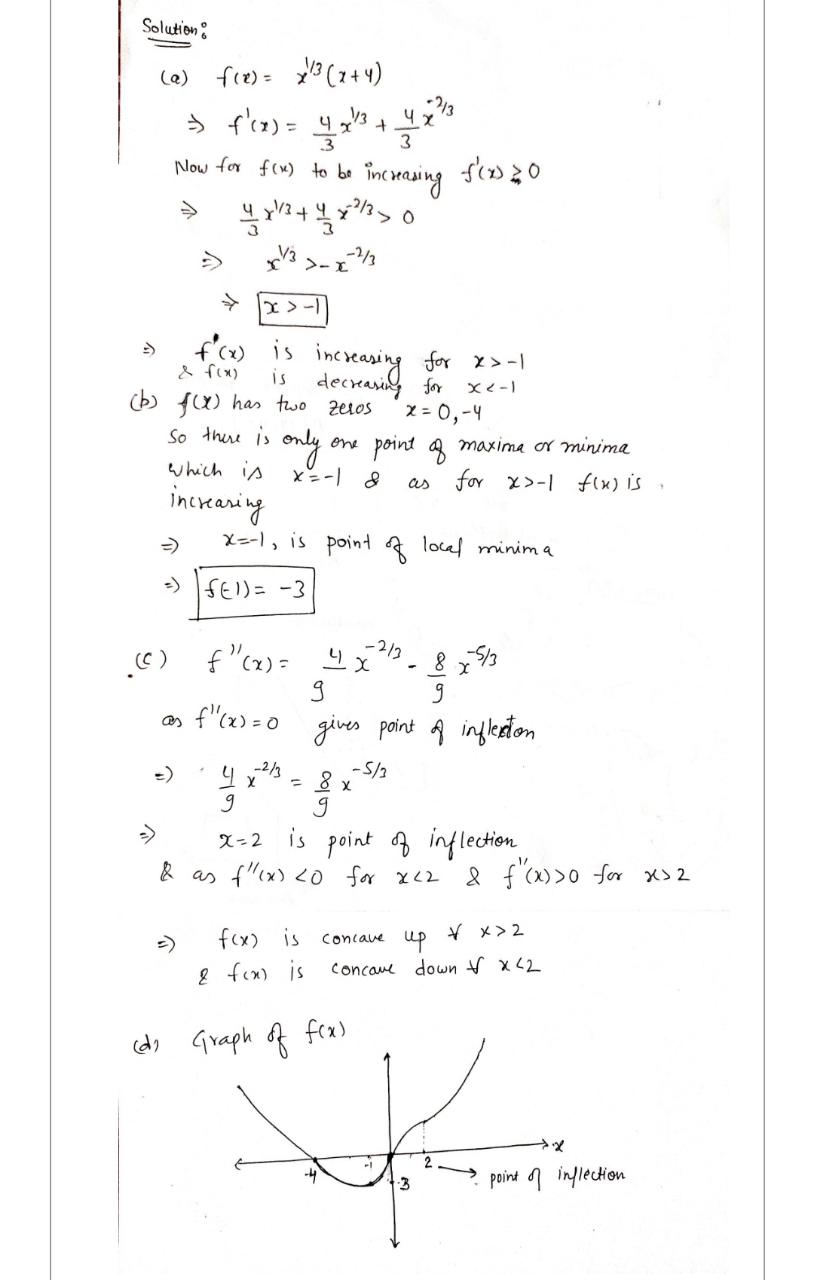 Solution:
(a) f(x) = x^{1/3}(x+4)
⇒ f'(x) = 4/3 x^{1/3} + 4/3 x^{-2/3}
Now for f(x) to be increasing f'(x) ≥ 0
⇒ 4/3 x^{1/3} + 4/3 x^{-2/3} > 0
⇒ x^{1/3} > -x^{-2/3}
⇒ x > -1
⇒ f'(x) is increasing for x > -1
& f(x) is decreasing for x < -1
(b) f(x) has two zeros x = 0, -4
So there is only one point of maxima or minima
which is x = -1 & as for x > -1 f(x) is
increasing
⇒ x = -1, is point of local minima
⇒ f(-1) = -3
(c) f''(x) = 4/9 x^{-2/3} - 8/9 x^{-5/3}
as f''(x) = 0 gives point of inflection
⇒ 4/9 x^{-2/3} = 8/9 x^{-5/3}
⇒ x = 2 is point of inflection
& as f''(x) < 0 for x < 2 & f''(x) > 0 for x > 2
⇒ f(x) is concave up ∀ x > 2
& f(x) is concave down ∀ x < 2
(d) Graph of f(x)
x
-4 -1 2 → point of inflection
-3